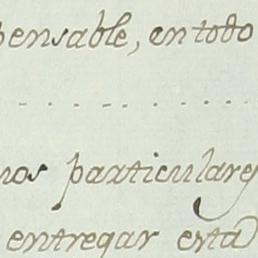 pensable, en todo
. . . . . . . . . . . .
nos particulares
entregar esta